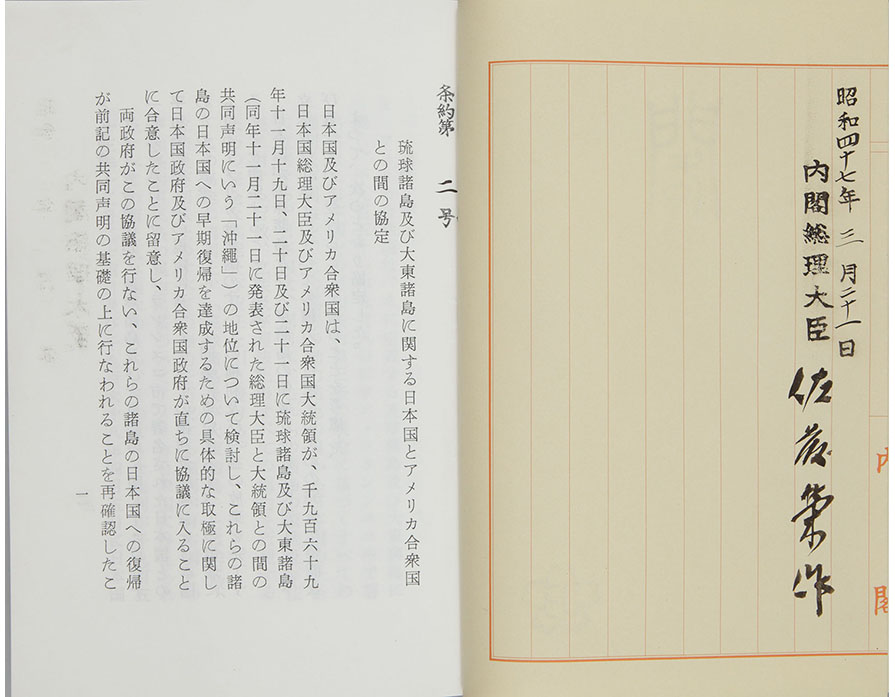 昭和四十七年三月二十一日
内閣総理大臣 佐藤榮作
内閣
条約第二号
琉球諸島及び大東諸島に関する日本国とアメリカ合衆国
との間の協定
日本国及びアメリカ合衆国は、
日本国総理大臣及びアメリカ合衆国大統領が、千九百六十九
年十一月十九日、二十日及び二十一日に琉球諸島及び大東諸島
(同年十一月二十一日に発表された総理大臣と大統領との間の
共同声明にいう「沖縄」)の地位について検討し、これらの諸
島の日本国への早期復帰を達成するための具体的な取極に関し
て日本国政府及びアメリカ合衆国政府が直ちに協議に入ること
に合意したことに留意し、
両政府がこの協議を行ない、これらの諸島の日本国への復帰
が前記の共同声明の基礎の上に行なわれることを再確認したこ
一